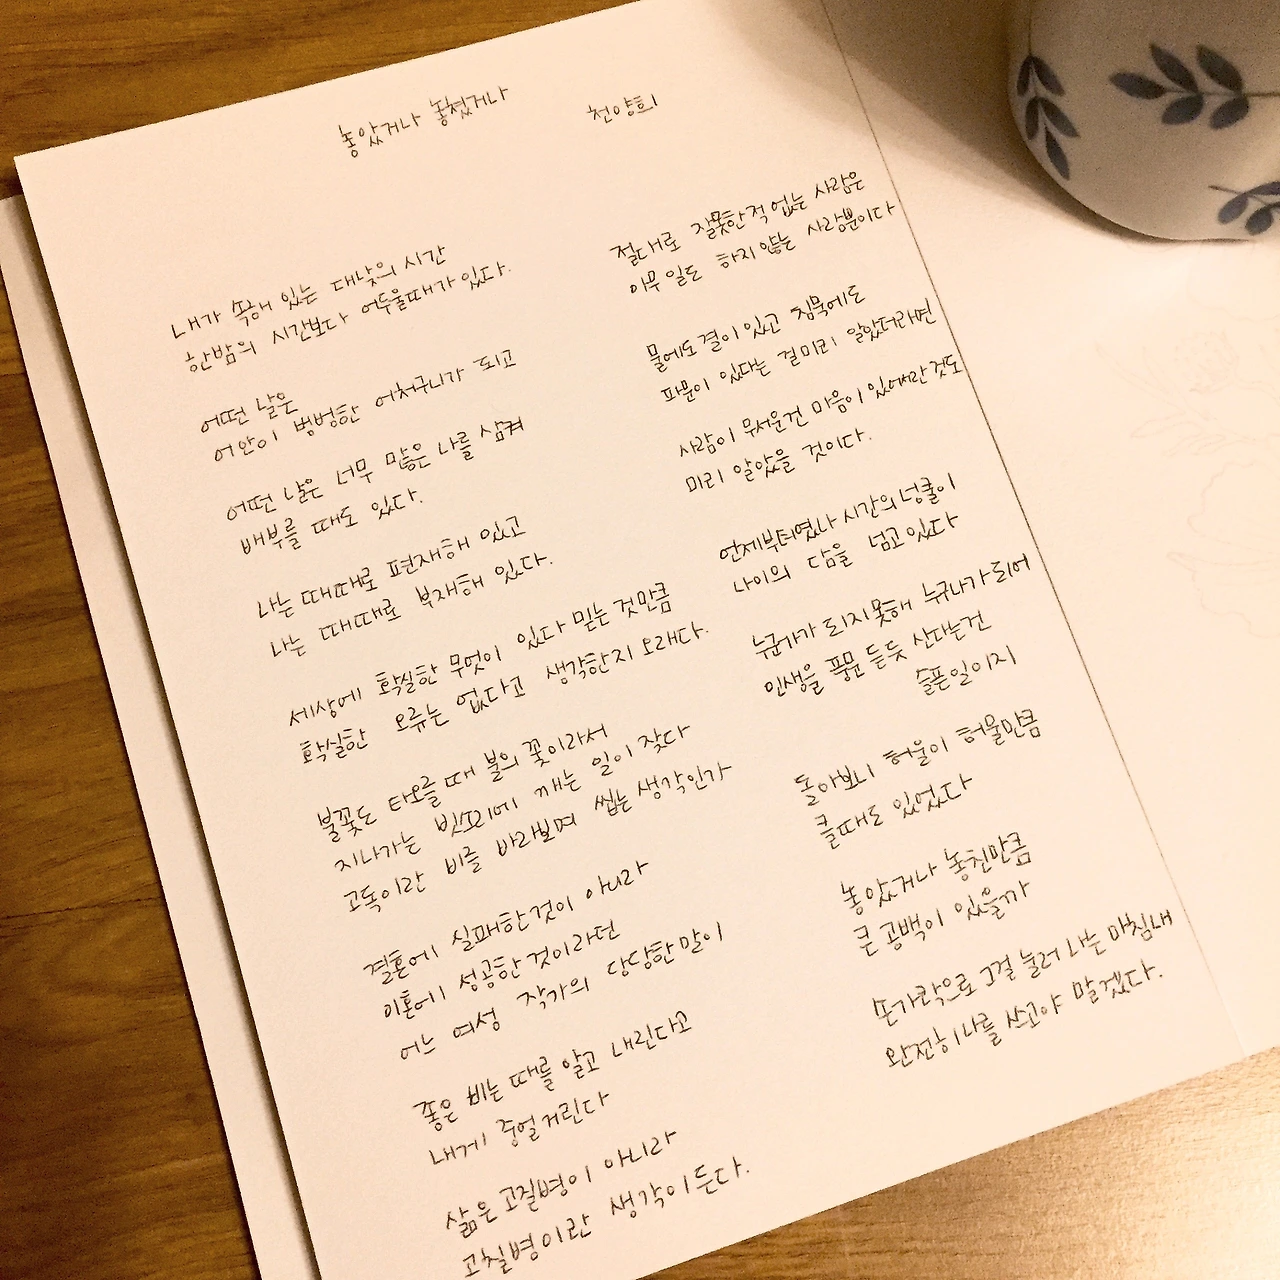 놓았거나 놓쳤거나
천양희
내가 속해 있는 대낮의 시간
한밤의 시간보다 어두울때가 있다.
어떤 날은
어안이 벙벙한 어처구니가 되고
어떤 날은 너무 많은 나를 삼켜
배부를 때도 있다.
나는 때때로 편재해 있고
나는 때때로 부재해 있다.
세상에 확실한 무엇이 있다 믿는 것만큼
확실한 오류는 없다고 생각한지 오래다.
불꽃도 타오를 때 불의 꽃이라서
지나가는 빗소리에 깨는 일이 잦다
고독이란 비를 바라보며 씹는 생각인가
결혼에 실패한 것이 아니라
이혼에 성공한 것이라던
어느 여성 작가의 당당한 말이
좋은 비는 때를 알고 내린다고
내게 중얼거린다
삶은 고질병이 아니라
고칠병이란 생각이 든다.
절대로 잘못한적 없는 사람은
아무 일도 하지 않는 사람뿐이다
물에도 결이 있고 침묵에도
파문이 있다는 걸 미리 알았더라면
사람이 무서운건 마음이 있어서란 것도
미리 알았을 것이다.
언제부터였나 시간의 넝쿨이
나이의 담을 넘고 있다
누군가가 되지 못해 누구나가 되어
인생을 풍문 듣듯 산다는건
슬픈일이지
돌아보니 허물이 허물만큼
클때도 있었다
놓았거나 놓친만큼
큰 공백이 있을까
손가락으로 그걸 눌러 나는 마침내
완전히 나를 쓰고야 말겠다.